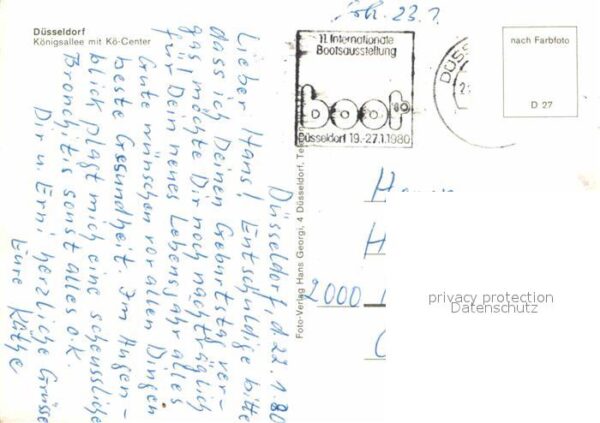 Düsseldorf
Königsallee mit Kö-Center
23.1.
11. Internationale
Bootsausstellung
boot '80
Düsseldorf 19.-27.1.1980
DÜSS
nach Farbfoto
D 27
Düsseldorf, d. 22.1.80
Lieber Hans! Entschuldige bitte
dass ich Deinen Geburtstag ver-
gas, möchte Dir noch nachträglich
für Dein neues Lebensjahr alles
Gute wünschen vor allen Dingen
beste Gesundheit. Im Augen-
blick plagt mich eine scheussliche
Bronchitis sonst alles o.K.
Dir u. Erni herzliche Grüsse
Eure Käthe
Foto-Verlag Hans Georgi, 4 Düsseldorf,
H
H
2000
privacy protection
Datenschutz